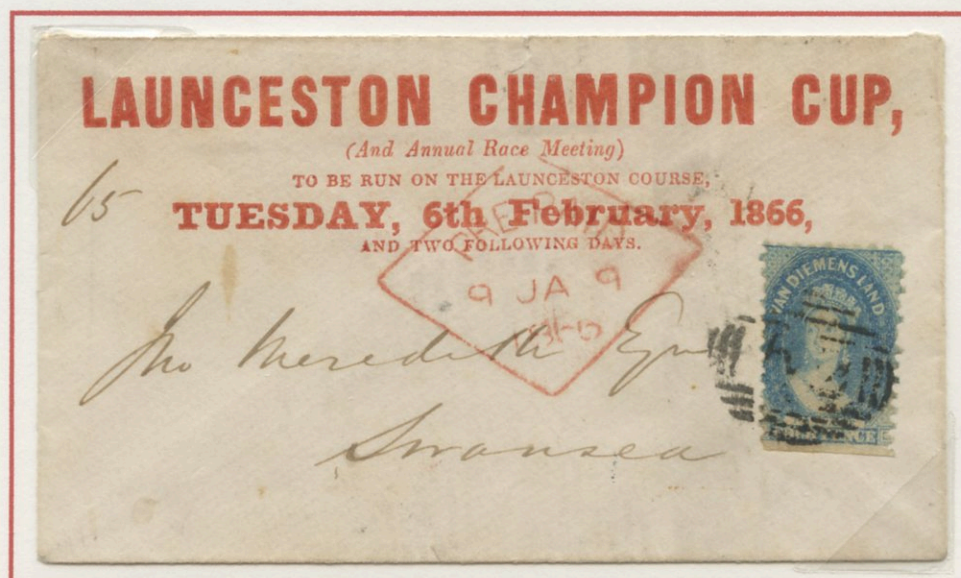 LAUNCESTON CHAMPION CUP,
(And Annual Race Meeting)
TO BE RUN ON THE LAUNCESTON COURSE,
65
TUESDAY, 6th February, 1866,
AND TWO FOLLOWING DAYS.
PRE PAID
9 JA 9
VAN DIEMENS LAND
Jno Meredith Esqr
Swansea